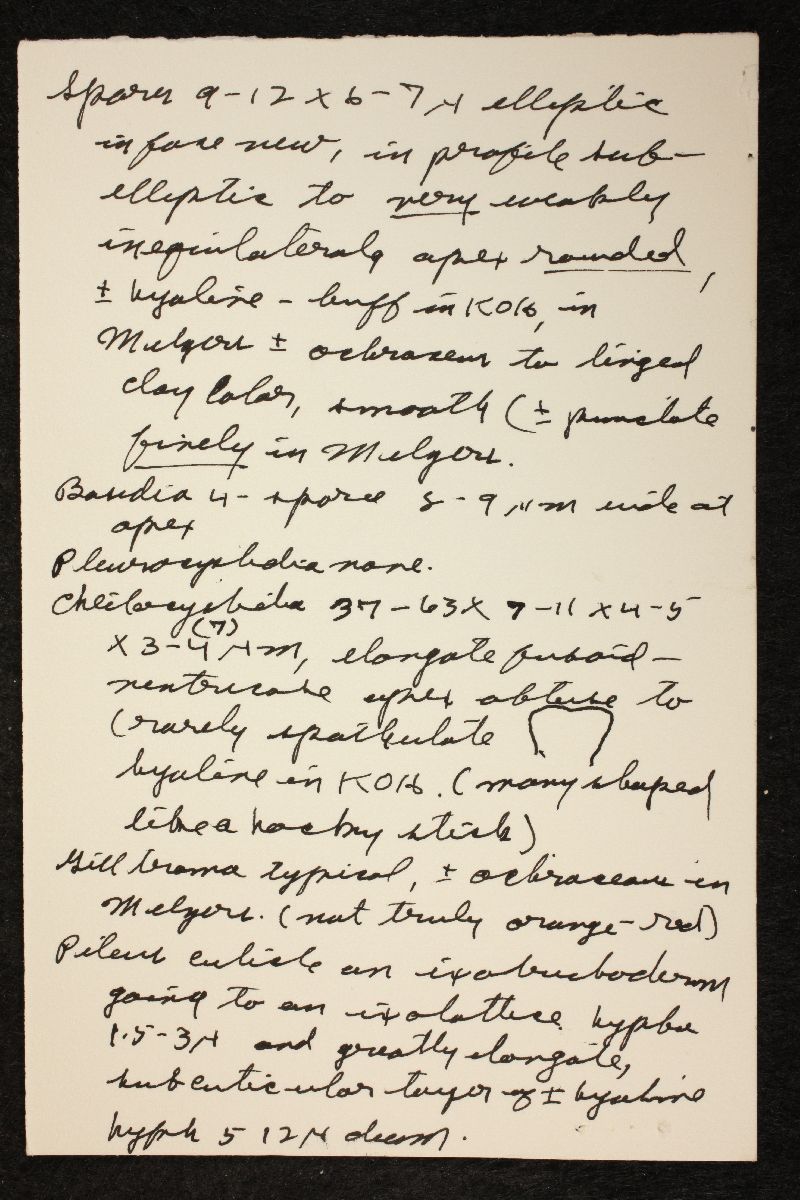 Spores 9-12 x 6-7 µ elliptic
in face view, in profile sub-
elliptic to very weakly
inequilateral, apex rounded,
± hyaline - buff in KOH, in
Melzers ± ochraceous to tinged
clay color, smooth (± punctate
finely in Melzers.
Basidia 4-spored 8-9 µm wide at
apex
Pleurocystidia none.
Cheilocystidia 37-63 x 7-11 x 4-5
(7)
x 3-4 µm, elongate fusoid-
ventricose apex obtuse to
(rarely spathulate
hyaline in KOH. (many shaped
like a hockey stick)
Gill trama typical, ± ochraceous in
Melzers. (not truly orange-red)
Pileus cuticle an ixotrichoderm
going to an ixolattice hyphae
1.5-3 µ and greatly elongate,
subcuticular layer of ± hyaline
hyph 5 12 µ diam.